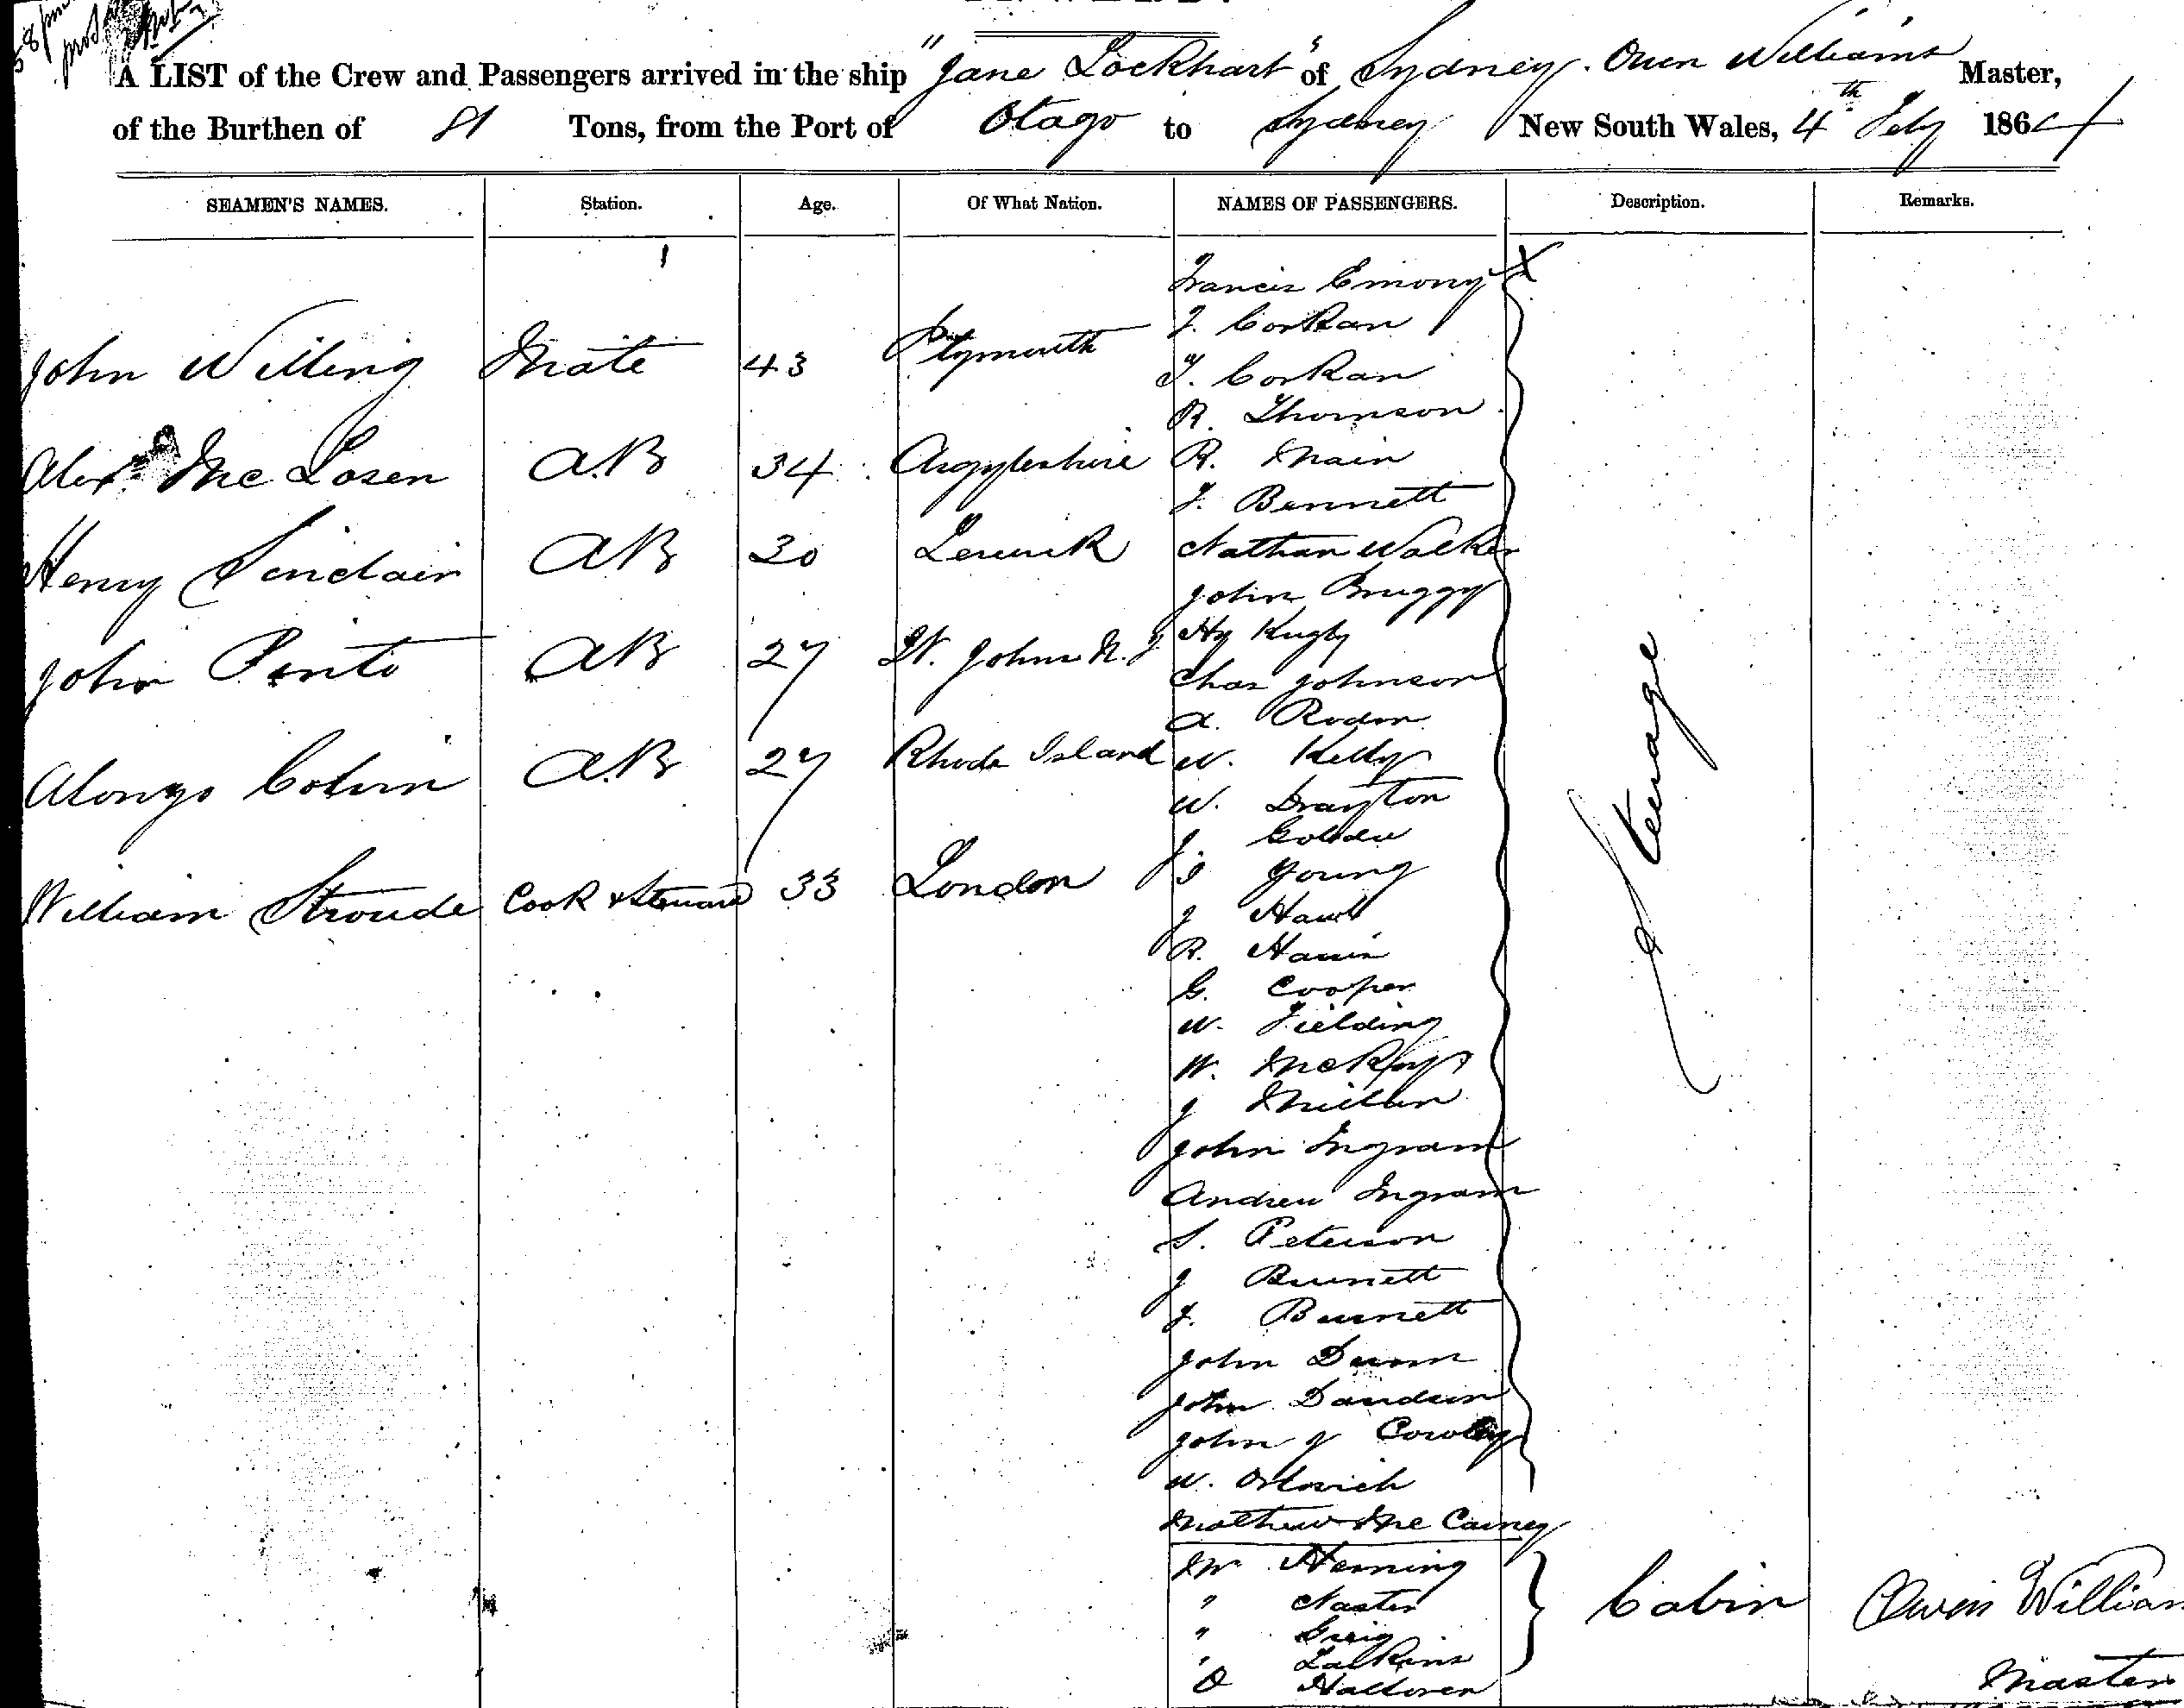 A LIST of the Crew and Passengers arrived in the ship "Jane Lockhart" of Sydney. Owen Williams Master,
of the Burthen of 81 Tons, from the Port of Otago to Sydney New South Wales, 4th Feby 1864
SEAMEN'S NAMES. Station. Age. Of What Nation. NAMES OF PASSENGERS. Description. Remarks.
Francis Emony
J. Corkan
John Willing Mate 43 Plymouth
T. Corkan
R. Thomson
Alexr Mc Losen A.B 34 Argyleshire R. Main
J. Bennett
Henry Sinclair AB 30 Lerwick Nathan Walker
John Bruggy
John Pinto AB 27 St. Johns N. Hy Rugby
Chas Johnson
A. Rodon
Alonzo Colvin A.B 27 Rhode Island W. Kelly
W. Drayton
J. Steerage
J Young
William Stroude Cook & Steward 33 London
J
R. Harris
G. Cooper
W. Fielding
W. McKay
J Millan
John Ingram
Andrew Ingram
S. Peterson
J Burnett
J. Burnett
John Dunn
John
John J Cowley
W.
Mathew Mc Cainey
Mr Heming
" Naster
" Greig
" Larkins
O Halloren
Cabin
Owen William
Master